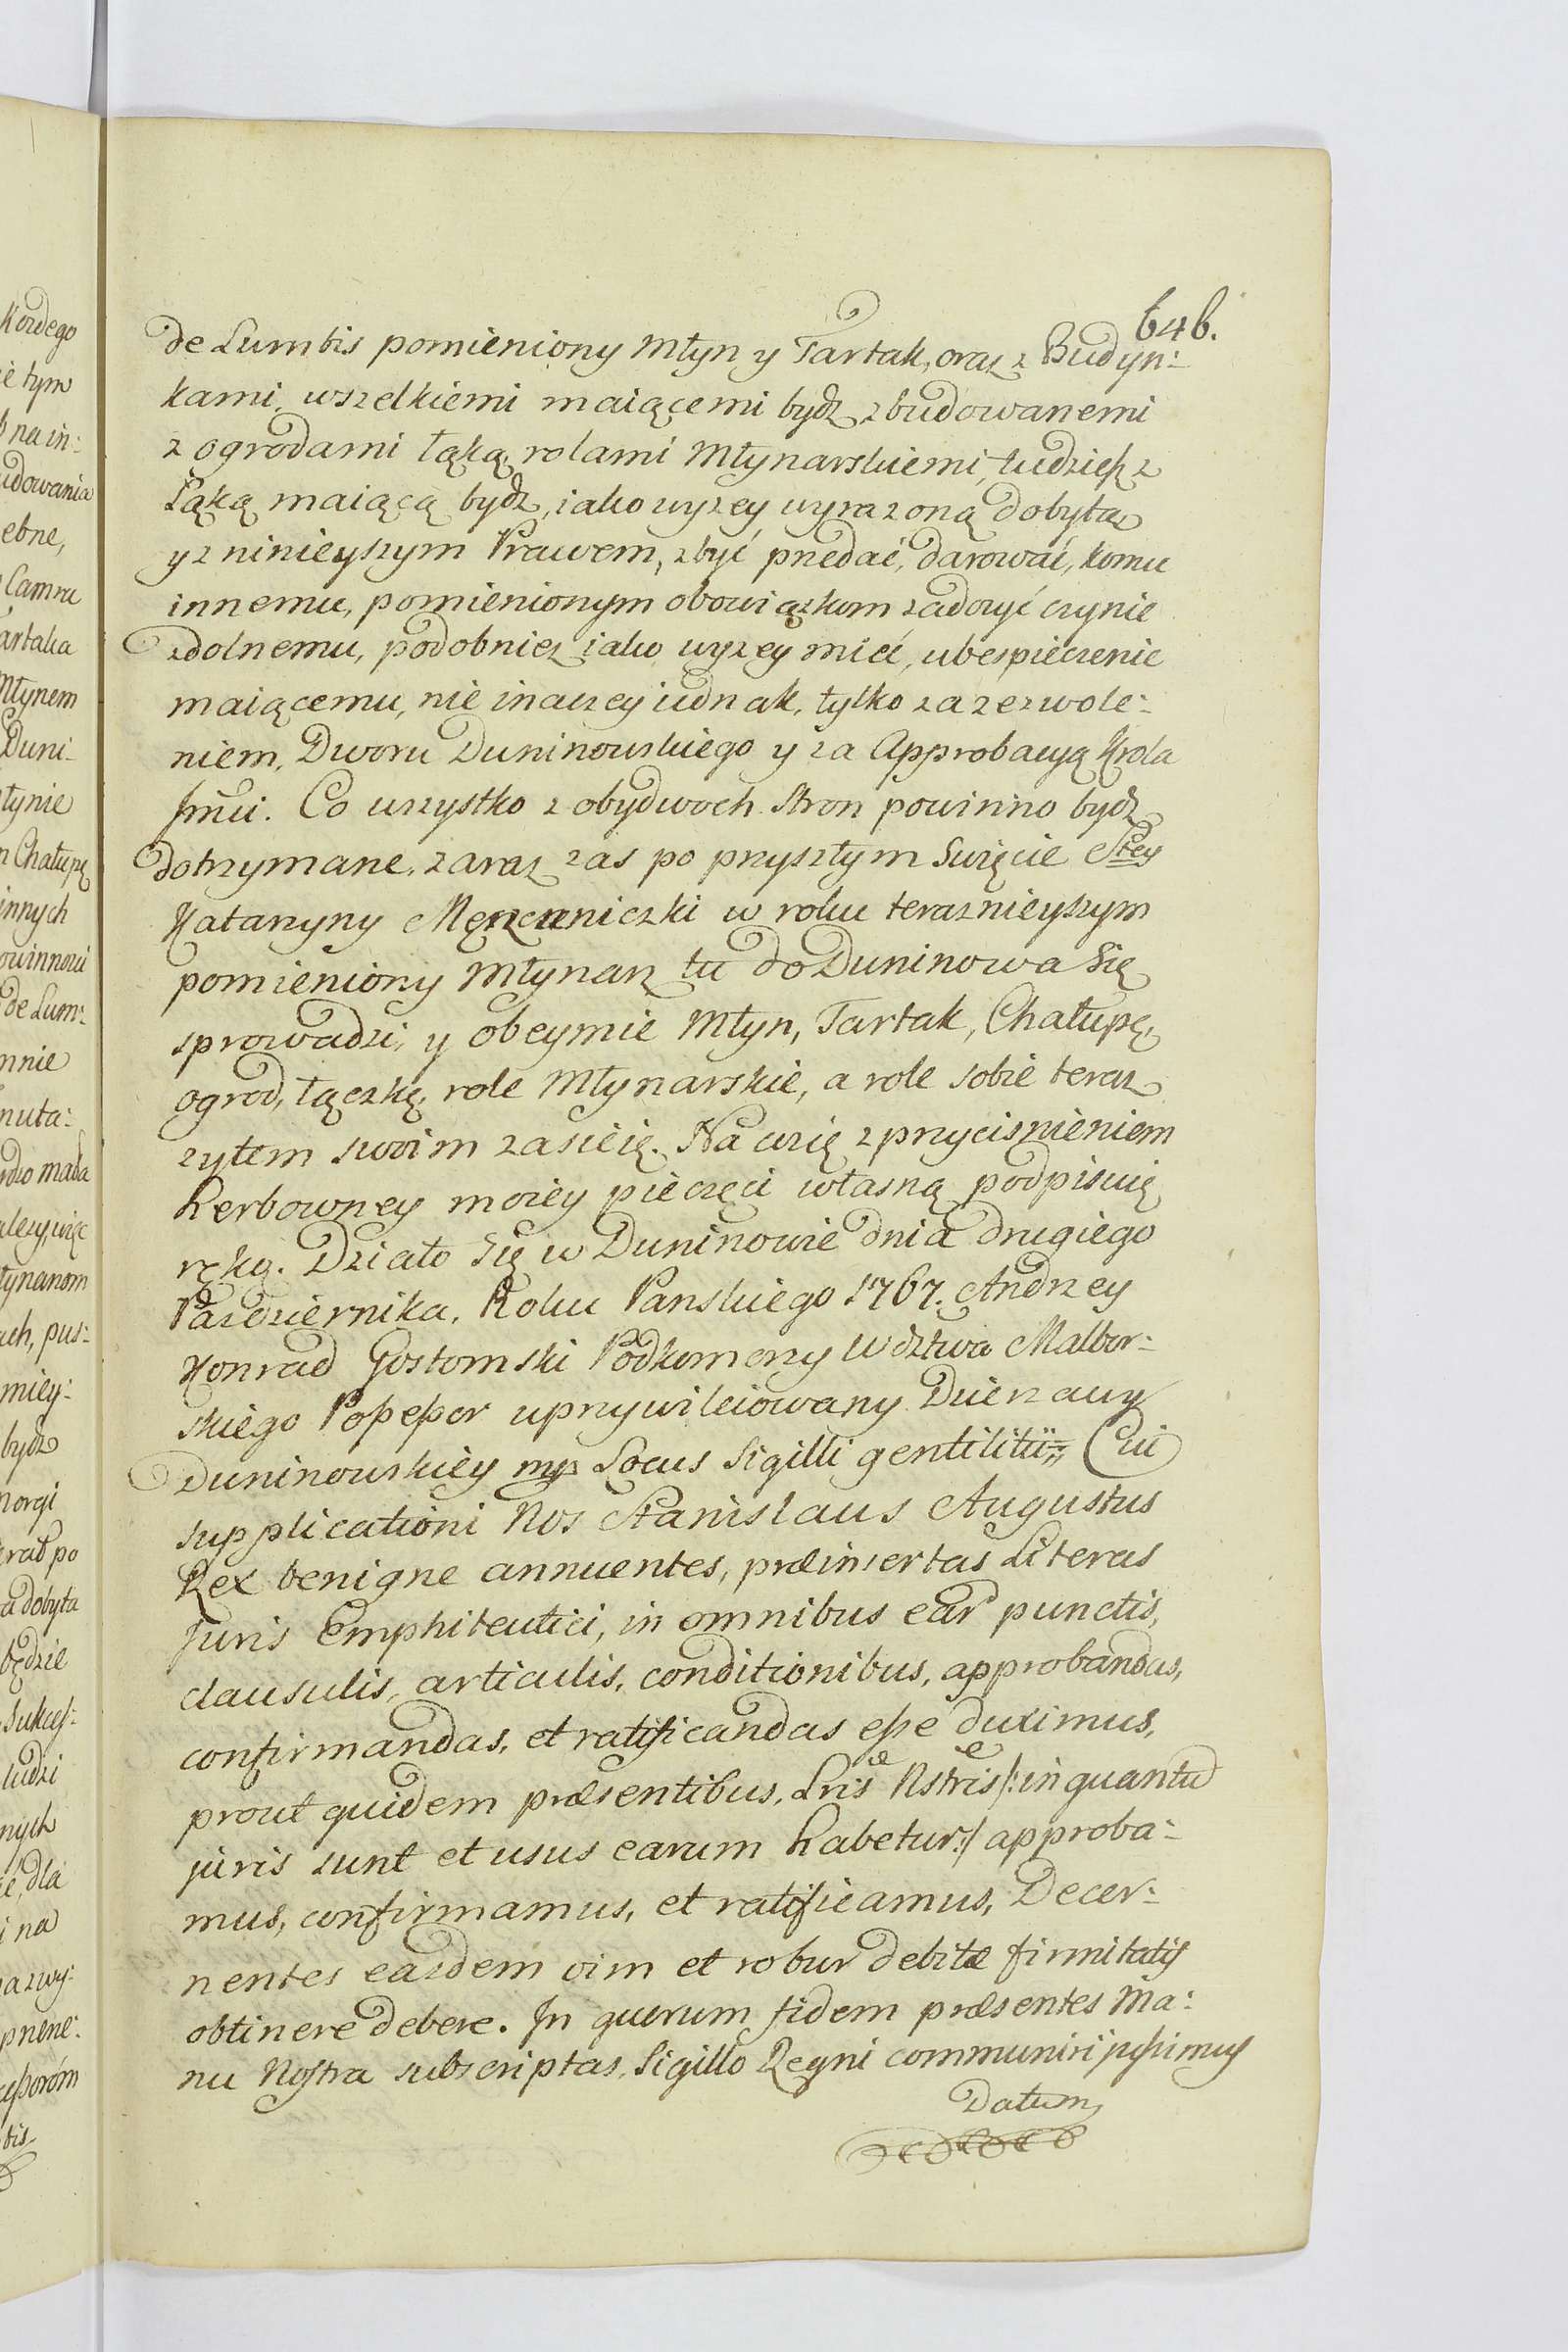 646.
de Lumbis pomieniony Młyn y Tartak, oraz z Budyn:
kami, wszelkiemi maiącemi bydz zbudowanemi
z ogrodami łąką, rolami Młynarskiemi, tudziesz z
Łąką maiącą bydz, iako wyzey wyrazoną dobytą
y z ninieyszym Prawem, zbyć przedać, darować, komu
innemu, pomienionym obowiązkom zadosyć czynić
zdolnemu, podobniez iako wyzey mieć, ubespieczenie
maiącemu, nie inaczey iednak, tylko za zezwole:
niem, Dworu Duninowskiego y za Approbacyą Krola
Jmći. Co wszystko z obydwoch stron powinno bydz
dotrzymane, zaraz zas po przyszłym Swięcie Stey
Katarzyny Męczenniczki w roku teraznieyszym
pomieniony Młynarz tu do Duninowa się
sprowadzi, y obeymie Młyn, Tartak, Chałupę,
ogrod, łączkę, role Młynarskie, a role sobie teraz
zytem swoim zasieię. Na co się z przycisnieniem
herbowney moiey pieczęci własną podpisuię
ręką. Działo się w Duninowie dnia drugiego
Pazdziernika, Roku Panskiego 1767. Andrzey
Konrad Gostomski Podkomorzy Wdztwa Malbor:
skiego Possessor uprzywileiowany Dzierzawy
Duninowskiey mp Locus Sigilli gentilitii Cui
supplicationi Nos Stanislaus Augustus
Rex benigne annuentes, præinsertas Literas
Juris Emphiteutici, in omnibus ear punctis,
clausulis, articulis, conditionibus, approbandas,
confirmandas, et ratificandas esse duximus,
prout quidem præsentibus, Lris Nstris /: in quantu
juris sunt et usus earum habetur :/ approba:
mus, confirmamus, et ratificamus, Decer:
nentes easdem vim et robur debitæ firmitatis
obtinere debere. In quorum fidem præsentes Ma:
nu Nostra subscriptas, Sigillo Regni communiri jussimus
Datum
Kozdego
ie tym
na in:
udowania
ebne,
Camru
artaka
Młynem
Duni-
tynie
n Chałupę
innych
de Lum:
mnie
nuta:
tynarzom
ach, pus:
miey:
bydz
morgi
a dobyta
będzie
Sukces:
ludzi
nych
dla
i na
bis